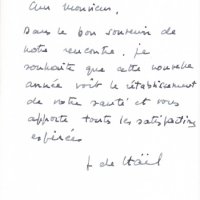 Cher monsieur,
Dans le bon souvenir de
notre rencontre, je
souhaite que cette nouvelle
année voit le rétablissement
de votre santé et vous
apporte toutes les satisfactions
espérées